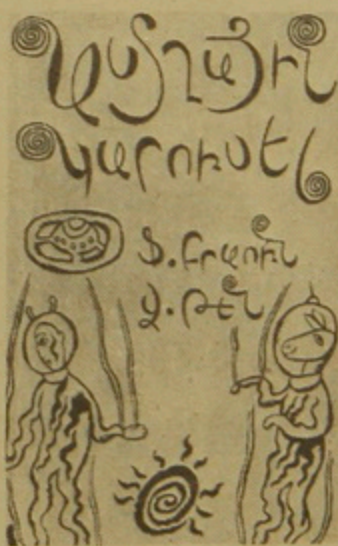 Աստղային
կարուսել
Ֆ. Բրաուն
Վ. Թեն